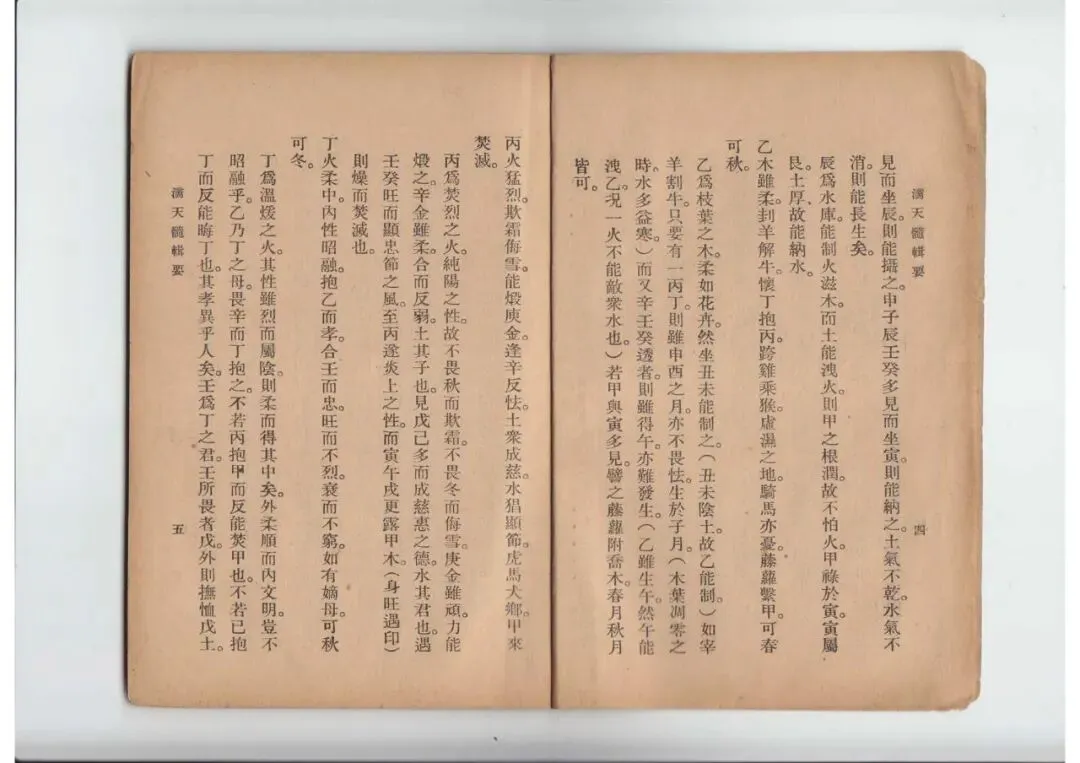 滴天髓輯要
四
見而坐辰。則能攝之。申子辰壬癸多見而坐寅。則能納之。土氣不乾。水氣不
消。則能長生矣。
辰爲水庫。能制火滋木。而土能洩火。則甲之根潤。故不怕火。甲祿於寅。寅屬
艮。土厚。故能納水。
乙木雖柔。刲羊解牛。懷丁抱丙。跨雞乘猴。虛濕之地。騎馬亦憂。藤蘿繫甲。可春
可秋。
乙爲枝葉之木。柔如花卉。然坐丑未能制之。（丑未陰土。故乙能制）如宰
羊割牛。只要有一丙丁。則雖申酉之月。亦不畏怯。生於子月。（木葉凋零之
時。水多益寒）而又辛壬癸透者。則雖得午。亦難發生。（乙雖生午。然午能
洩乙。况一火不能敵衆水也。）若甲與寅多見。譬之藤蘿附喬木。春月秋月
皆可。
丙火猛烈。欺霜侮雪。能煅庚金。逢辛反怯。土衆成慈。水猖顯節。虎馬犬鄉。甲來
焚滅。
丙爲焚烈之火。純陽之性。故不畏秋而欺霜。不畏冬而侮雪。庚金雖頑。力能
煅之。辛金雖柔。合而反弱。土其子也。見戊己多而成慈惠之德。水其君也。遇
壬癸旺而顯忠節之風。至丙遂炎上之性。而寅午戌更露甲木。（身旺遇印）
則燥而焚滅也。
丁火柔中。內性昭融。抱乙而孝。合壬而忠。旺而不烈。衰而不窮。如有嫡母。可秋
可冬。
丁爲溫煖之火。其性雖烈而屬陰。則柔而得其中矣。外柔順而內文明。豈不
昭融乎。乙乃丁之母。畏辛而丁抱之。不若丙抱甲而反能焚甲也。不若己抱
丁而反能晦丁也。其孝異乎人矣。壬爲丁之君。壬所畏者戊。外則撫恤戊土。
滴天髓輯要
五